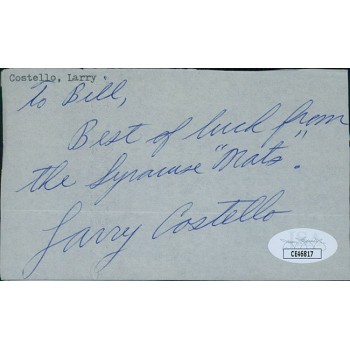 Costello, Larry
To Bill,
Best of luck from
the Syracuse "Nats".
Larry Costello
CE46817